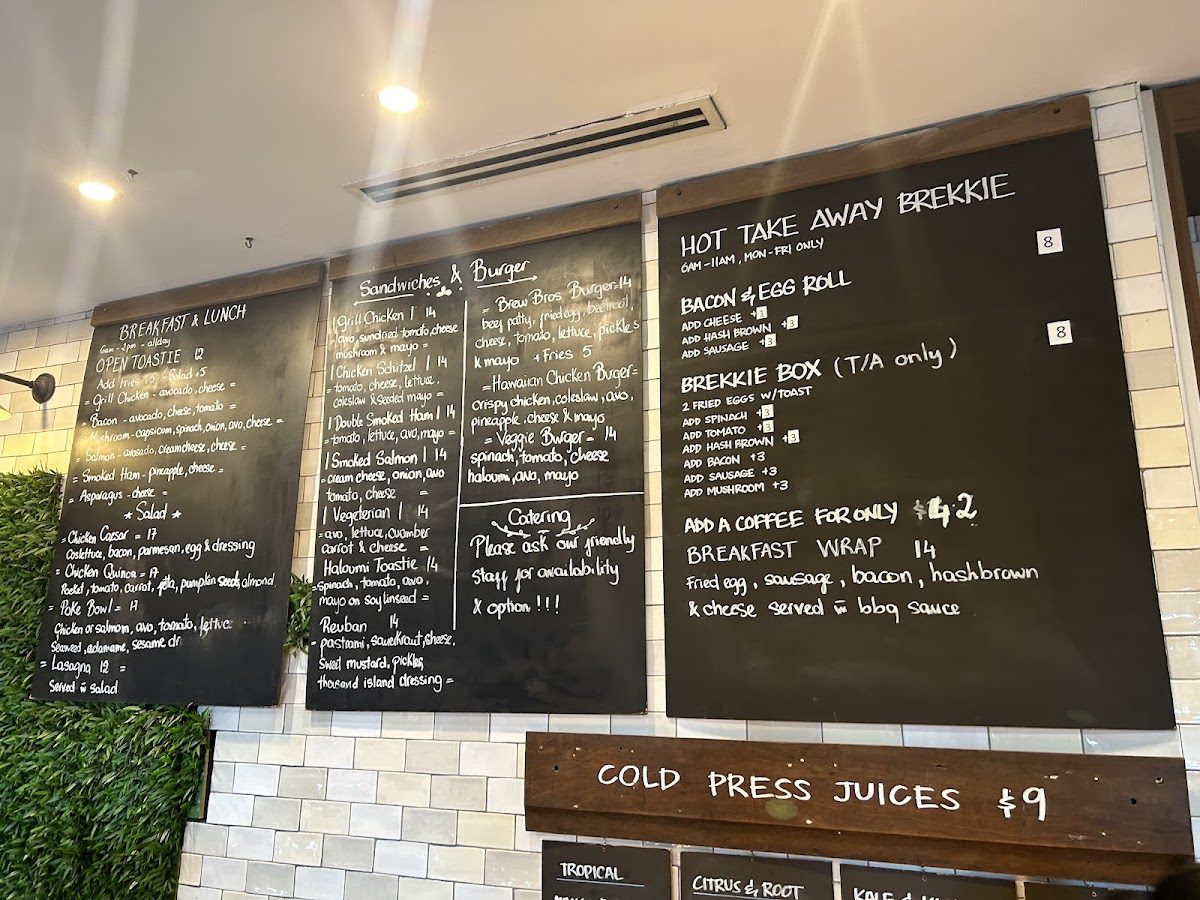 BREAKFAST & LUNCH
6am - 3pm - allday
OPEN TOASTIE 12
Add Fries +5 Salad +5
= Grill Chicken - avocado, cheese =
= Bacon - avocado, cheese, tomato =
= Mushroom - capsicum, spinach, onion, avo, cheese =
= Salmon - avocado, creamcheese, cheese =
= Smoked Ham - pineapple, cheese =
= Asparagus - cheese =
* Salad *
= Chicken Caesar = 17
Coslettuce, bacon, parmesan, egg & dressing
= Chicken Quinoa = 17
Rocket, tomato, carrot, feta, pumpkin seeds, almond,
= Poke Bowl = 17
Chicken or salmon, avo, tomato, lettuce
Seaweed, edamame, sesame
= Lasagna 12 =
Served w salad
Sandwiches & Burger
| Grill Chicken | 14
- avo, sundried tomato, cheese
mushroom & mayo =
| Chicken Schitzel | 14
= tomato, cheese, lettuce,
coleslaw & seeded mayo =
| Double Smoked Ham | 14
= tomato, lettuce, avo, mayo =
| Smoked Salmon | 14
= cream cheese, onion, avo
tomato, cheese =
| Vegeterian | 14
= avo, lettuce, cucumber
carrot & cheese =
Haloumi Toastie 14
= spinach, tomato, avo,
mayo on soylinseed =
Reuban 14
= pastrami, sauerkraut, cheese,
Sweet mustard, pickles,
thousand island dressing =
= Brew Bros Burger = 14
beef patty, fried egg, beetroot,
cheese, tomato, lettuce, pickles
& mayo + Fries 5
= Hawaiian Chicken Burger =
crispy chicken, coleslaw, avo,
pineapple, cheese & mayo
= Veggie Burger = 14
spinach, tomato, cheese
haloumi, avo, mayo
Catering
Please ask our friendly
Staff for availability
& option !!!
HOT TAKE AWAY BREKKIE
6AM - 11AM, MON - FRI ONLY
BACON & EGG ROLL 8
ADD CHEESE +1
ADD HASH BROWN +3
ADD SAUSAGE +3
BREKKIE BOX (T/A only) 8
2 FRIED EGGS W/TOAST
ADD SPINACH +3
ADD TOMATO +3
ADD HASH BROWN +3
ADD BACON +3
ADD SAUSAGE +3
ADD MUSHROOM +3
ADD A COFFEE FOR ONLY $4.2
BREAKFAST WRAP 14
Fried egg, sausage, bacon, hashbrown
& cheese served w bbq sauce
COLD PRESS JUICES $9
TROPICAL
CITRUS & ROOT
KALE &